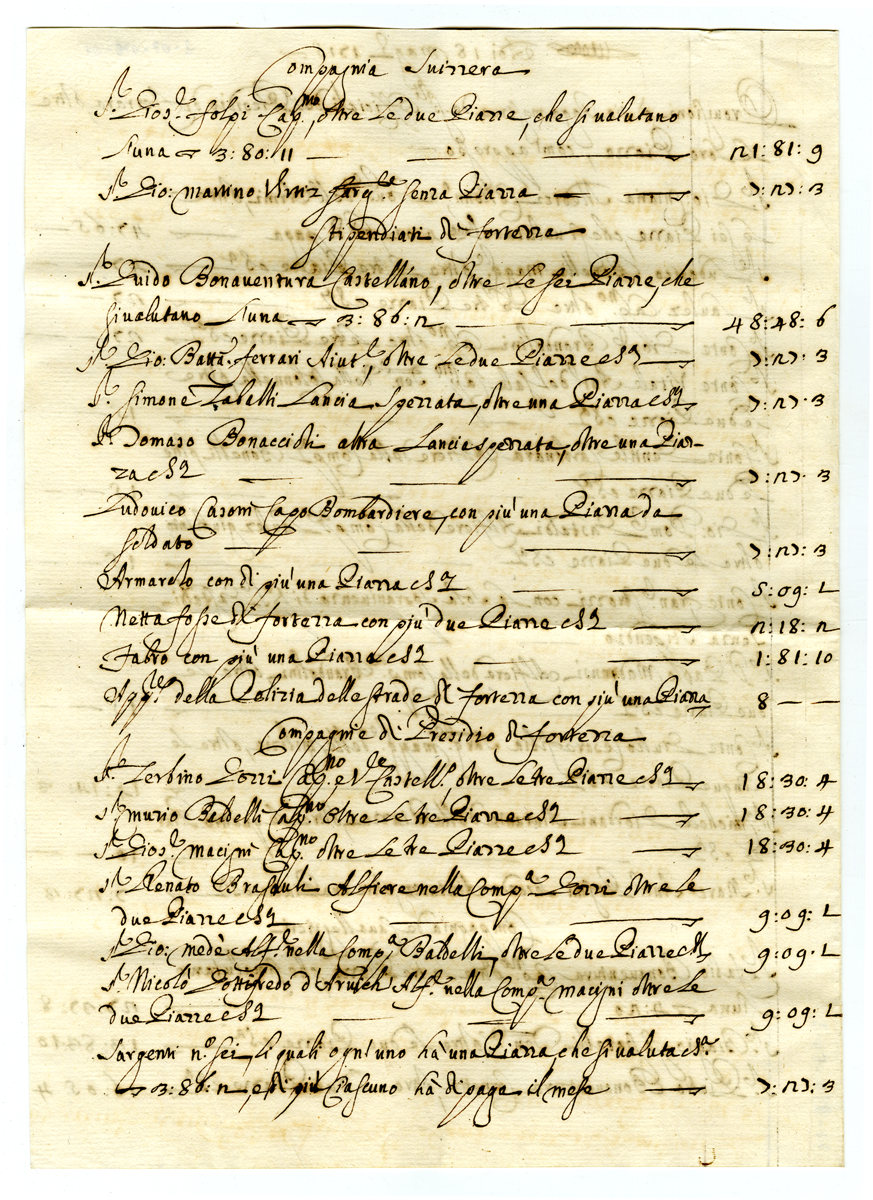 Compagnia Suizzera
S.r Gios.e folpi Cap.no, oltre le due Piazze, che si valutano
l'una 3: 80: 11 21: 81: 9
S.r Gio: Martino Wirtz Sarg.te senza Piazza 7: 27: 3
Stipendiati di fortezza
S.r Guido Bonaventura Castellano, oltre le sei Piazze, che
si valutano l'una 3: 86: 2 48: 48: 6
S.r Gio: Batt.a ferrari Aiut.e, oltre le due Piazze c.s.a 7: 27: 3
S.r Simone Zaballi Lancia Spezzata, oltre una Piazza c.s.a 7: 27: 3
S.r Tomaso Bonaccioli altra Lancia spezzata, oltre una Piaz-
za c.s.a 7: 27: 3
Ludovico Casoni Capo Bombardiere, con più una Piazza da
soldato 7: 27: 3
Armarolo con di più una Piazza c.s.a 5: 09: 1
Netta fosse di fortezza con più due Piazze c.s.a 2: 18: 2
Fabro con più una Piazza c.s.a 1: 81: 10
App.re della Pulizia delle strade di fortezza con più una Piazza 8 — —
Compagnie di Presidio di fortezza
S.r Zerbino Gozzi Cap.no, e V.e Castell.o, oltre le tre Piazze c.s.a 18: 30: 4
S.r Muzio Baldelli Cap.no oltre le tre Piazze c.s.a 18: 30: 4
S.r Gios.e Macigni Cap.no oltre le tre Piazze c.s.a 18: 30: 4
S.r Renato Brasauli Alfiere nella Comp.a Gozzi oltre le
due Piazze c.s.a 9: 09: 1
S.r Gio: Medè Alf.e nella Comp.a Baldelli, oltre le due Piazze c.s.a 9: 09: 1
S.r Nicolò Gottifredo d'Alf.e nella Comp.a Macigni oltre le
due Piazze c.s.a 9: 09: 1
Sargenti n.o sei, li quali ogn'uno hà una Piazza, che si valuta c.s.a
3: 86: 2, e di più ciascuno hà di paga il mese 7: 27: 3